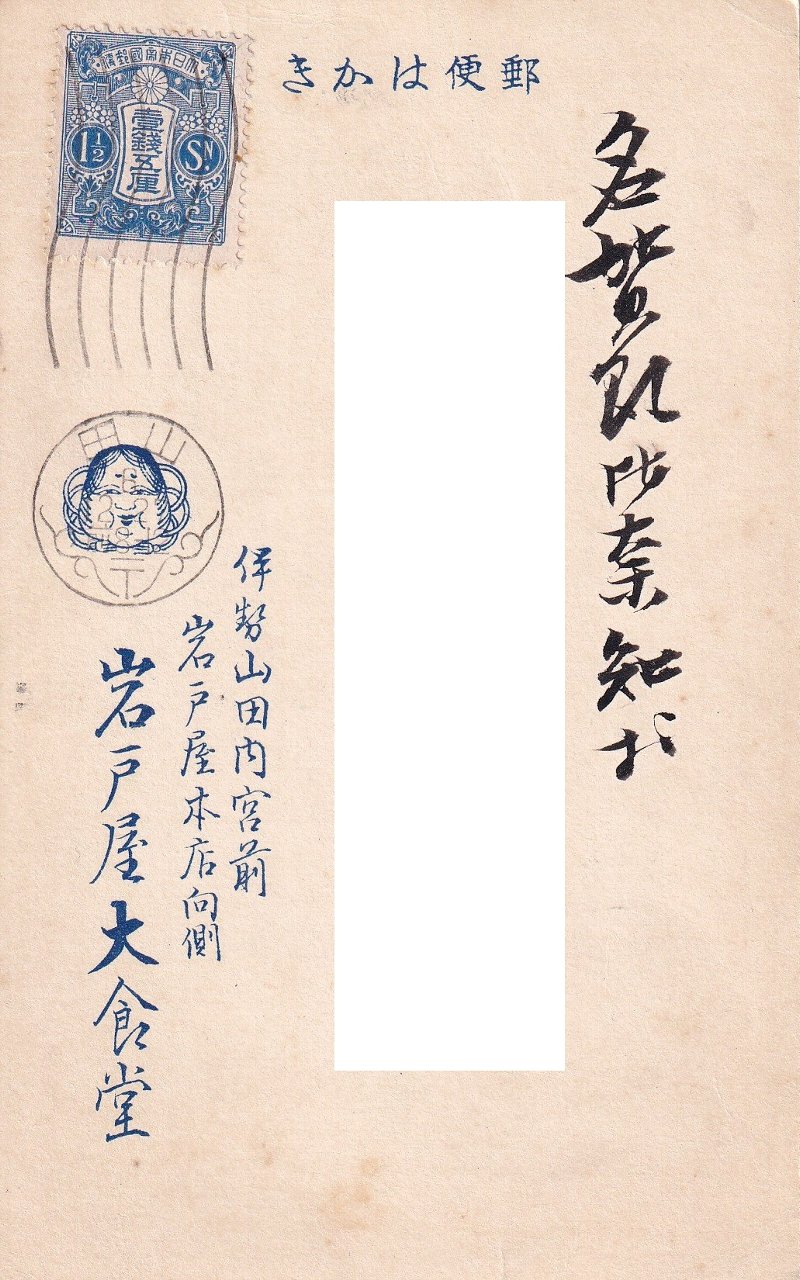 郵便はかき
大日本帝國郵便
壹錢五厘
1½ SN
名賀郡比奈知村
山田
伊勢山田内宮前
岩戸屋本店向側
岩戸屋大食堂